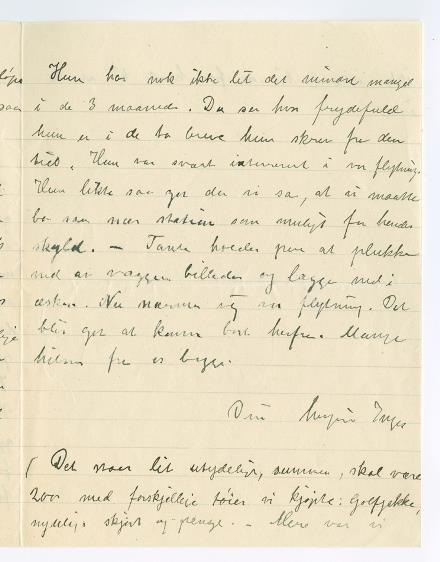 Hun har nok ikke lit det mindste mangel
i de 3 maaneder. Du ser hvor frydefuld
hun er i de to breve hun skrev fra den
tid. Hun var svært interesseret i vor flytning.
Hun likte saa godt da vi sa, at vi maatte
bo saa nær station som muligt for hendes
skyld. — Tante holder paa at plukke
ned av væggen billeder og lægge ned i
æsken. Nu nærmer sig vor flytning. Det
blir godt at komme bort herfra. Mange
hilsen fra os begge.
Din Inga
( Det staar lit utydelig, summen, skal være
200 med forskjellige tøier vi kjøpte: Golfjakke,
nydelig skjørt og penge. - Mere var vi